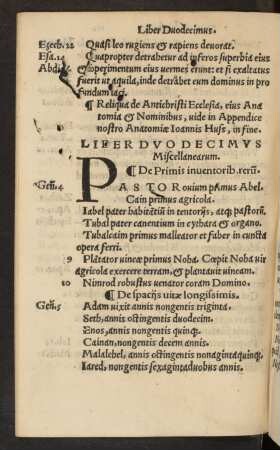 Liber Duodecimus.
Ezech. 22 Quasi leo rugiens & rapiens deuorat.
Esa. 14 Quapropter detrahetur ad inferos superbia eius
Abdi. & operimentum eius uermes erunt: et si exaltatus
fuerit ut aquila, inde detrahet eum dominus in pro
fundum laci.
¶ Reliqua de Antichristi Ecclesia, eius Ana
tomia & Nominibus, uide in Appendice
nostro Anatomiæ Ioannis Huss, in fine.
LIBER DVODECIMVS
Miscellanearum.
¶ De Primis inuentorib. rerū.
Gen. 4 PASTOR ouium primus Abel.
Cain primus agricola.
Iabel pater habitātiū in tentorijs, atq; pastorū.
Tubal pater canentium in cythara & organo.
Tubalcaim primus malleator et faber in cuncta
opera ferri.
9 Plātator uineæ primus Noha. Cœpit Noha uir
agricola exercere terram, & plantauit uineam.
10 Nimrod robustus uenator coram Domino.
¶ De spacijs uitæ longissimis.
Gen. 5 Adam uixit annis nongentis triginta.
Seth, annis octingentis duodecim.
Enos, annis nongentis quinq;.
Cainan, nongentis decem annis.
Malalehel, annis octingentis nonaginta quinq;.
Iared, nongentis sexaginta duobus annis.